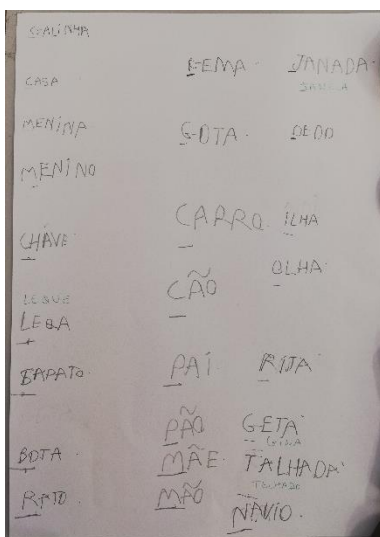 GALINHA
CASA
MENINA
MENINO
CHAVE
LEQUE
LEQA
SAPATO
BOTA
RATO
GEMA
GOTA
CARRO
CÃO
PAI
PÃO
MÃE
MÃO
JANADA
JANELA
DEDO
ILHA
OLHA
RIJA
GETA
TALHADA
TELHADO
NAVIO